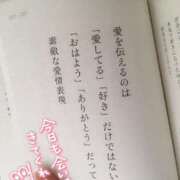 愛を伝えるのは
「愛してる」「好き」だけではない
「おはよう」「ありがとう」だって
素敵な愛情表現
今日も会い
きてくれ